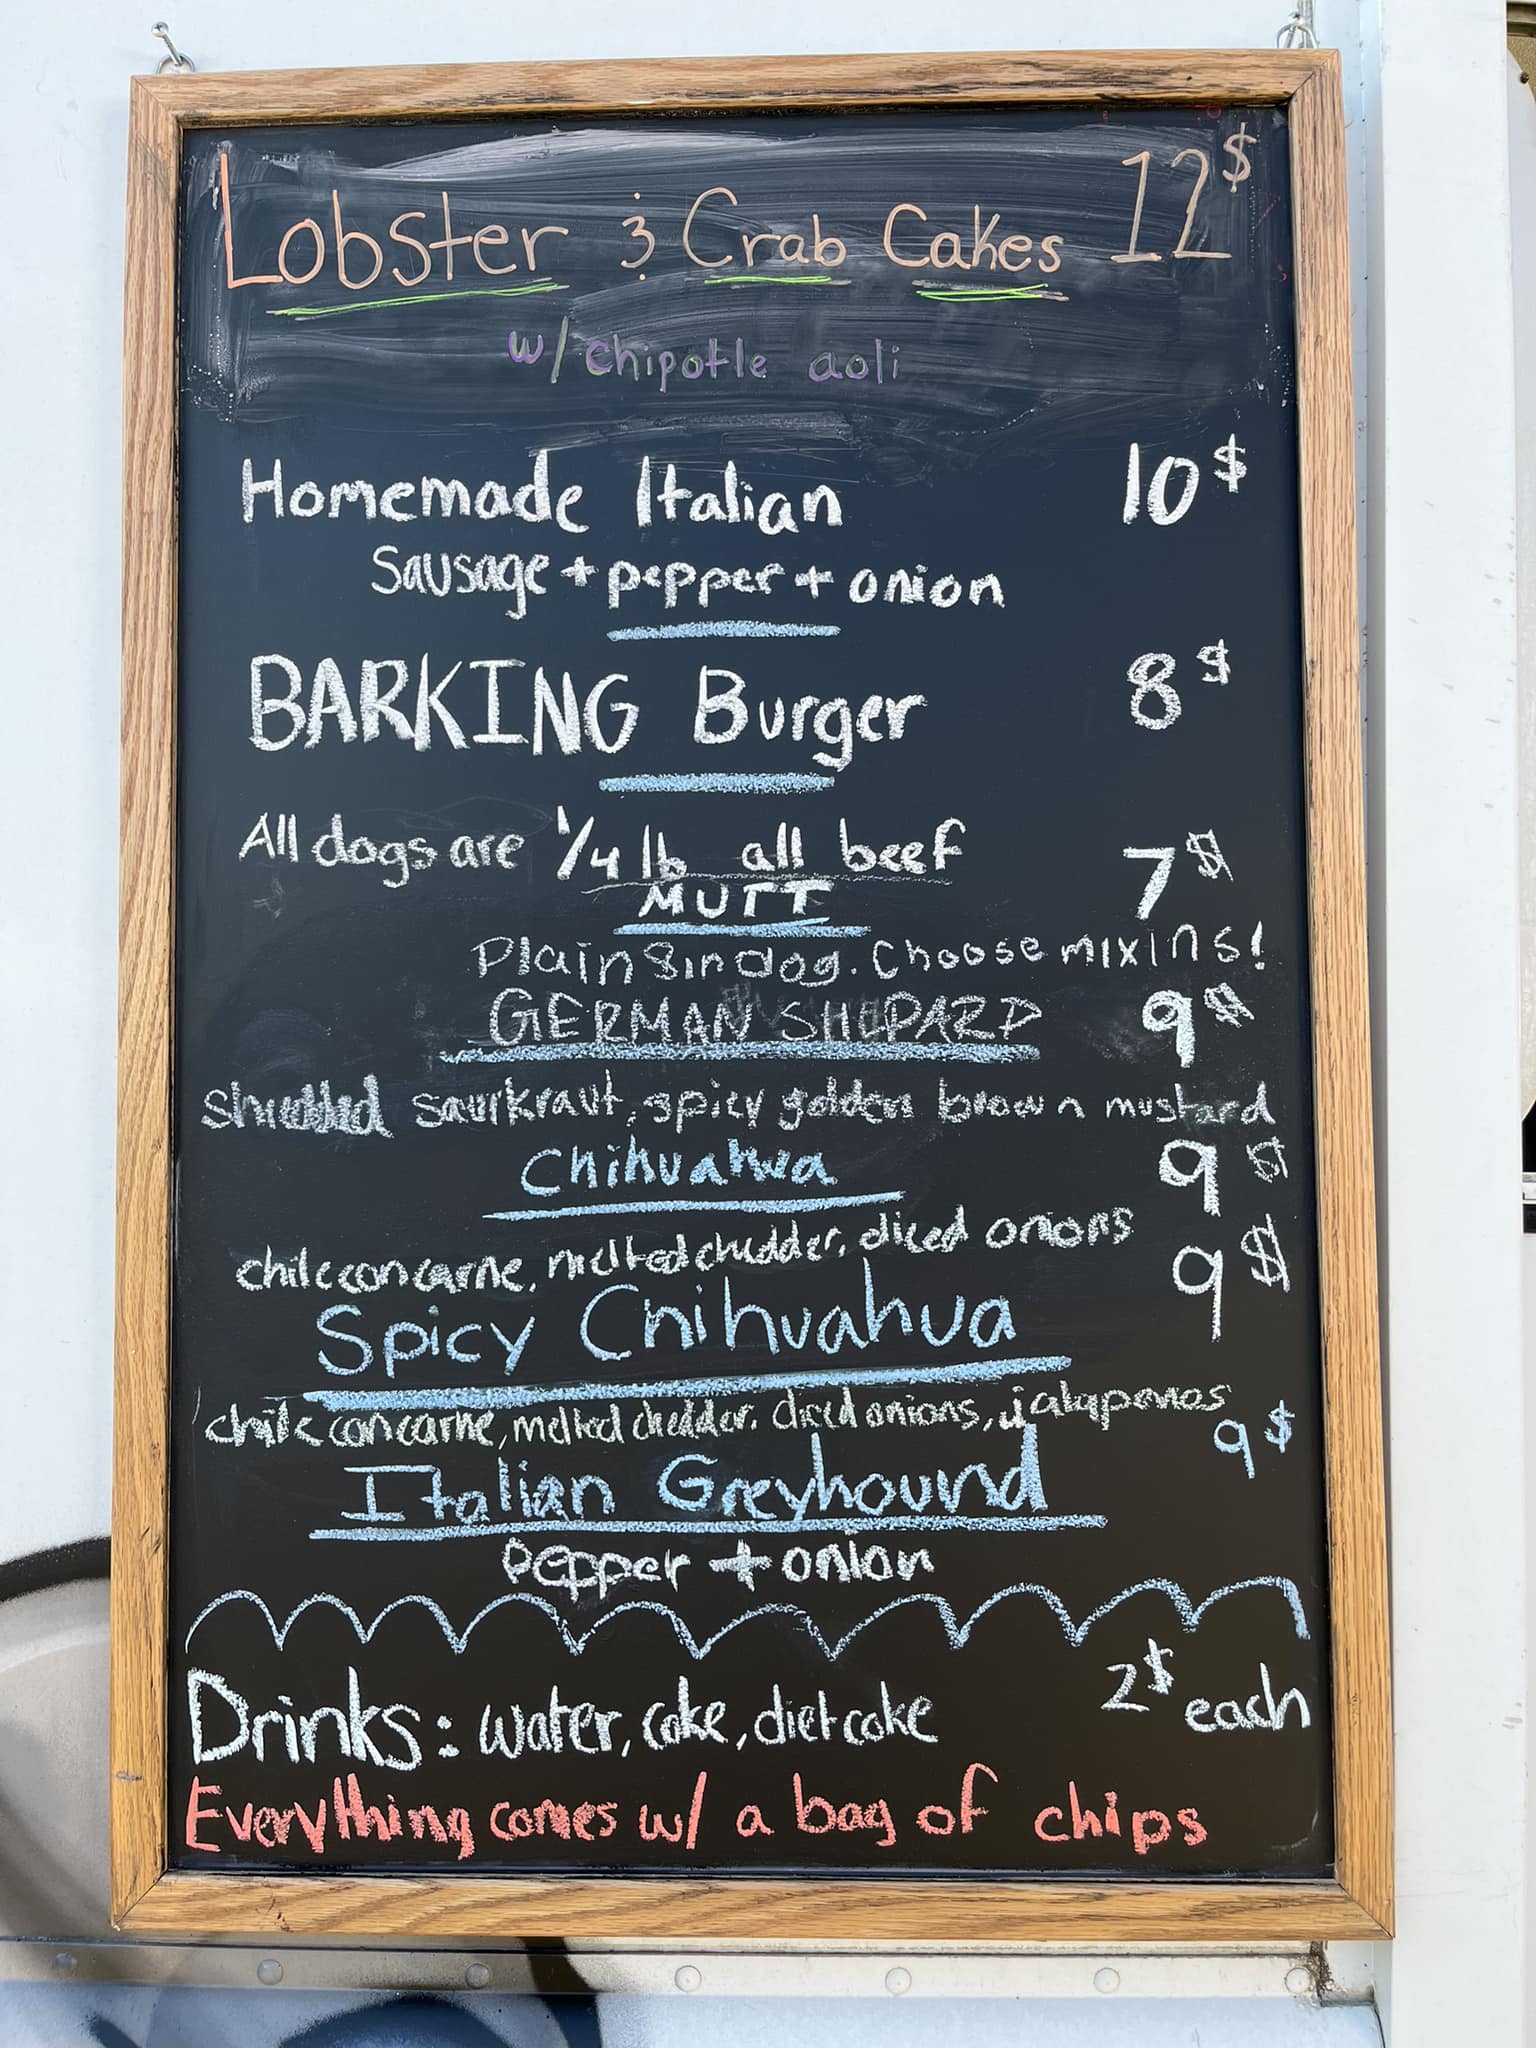 Lobster & Crab Cakes 12$
w/chipotle aoli
Homemade Italian 10$
Sausage + pepper + onion
BARKING Burger 8$
All dogs are 1/4 lb all beef
MUTT 7$
Plain 8in dog. Choose mixins!
GERMAN SHEPARD 9$
shredded saurkraut, spicy golden brown mustard
Chihuahua 9$
chile con carne, melted chedder, diced onions
Spicy Chihuahua 9$
chile con carne, melted chedder, diced onions, jalapenos
Italian Greyhound 9$
pepper + onion
Drinks: water, coke, diet coke 2$ each
Everything comes w/ a bag of chips